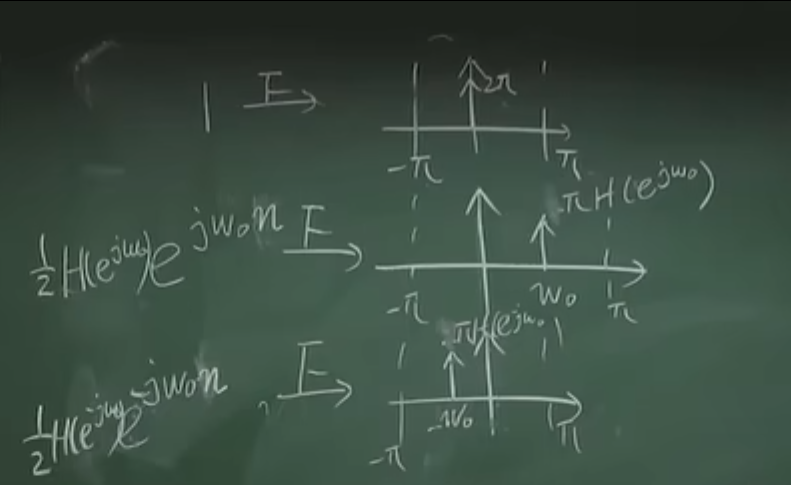 1 F 2π
-π π
½H(e^{jω₀})e^{jω₀n} F πH(e^{jω₀})
-π ω₀ π
½H(e^{-jω₀})e^{-jω₀n} F πH(e^{jω₀})
-π -ω₀ π